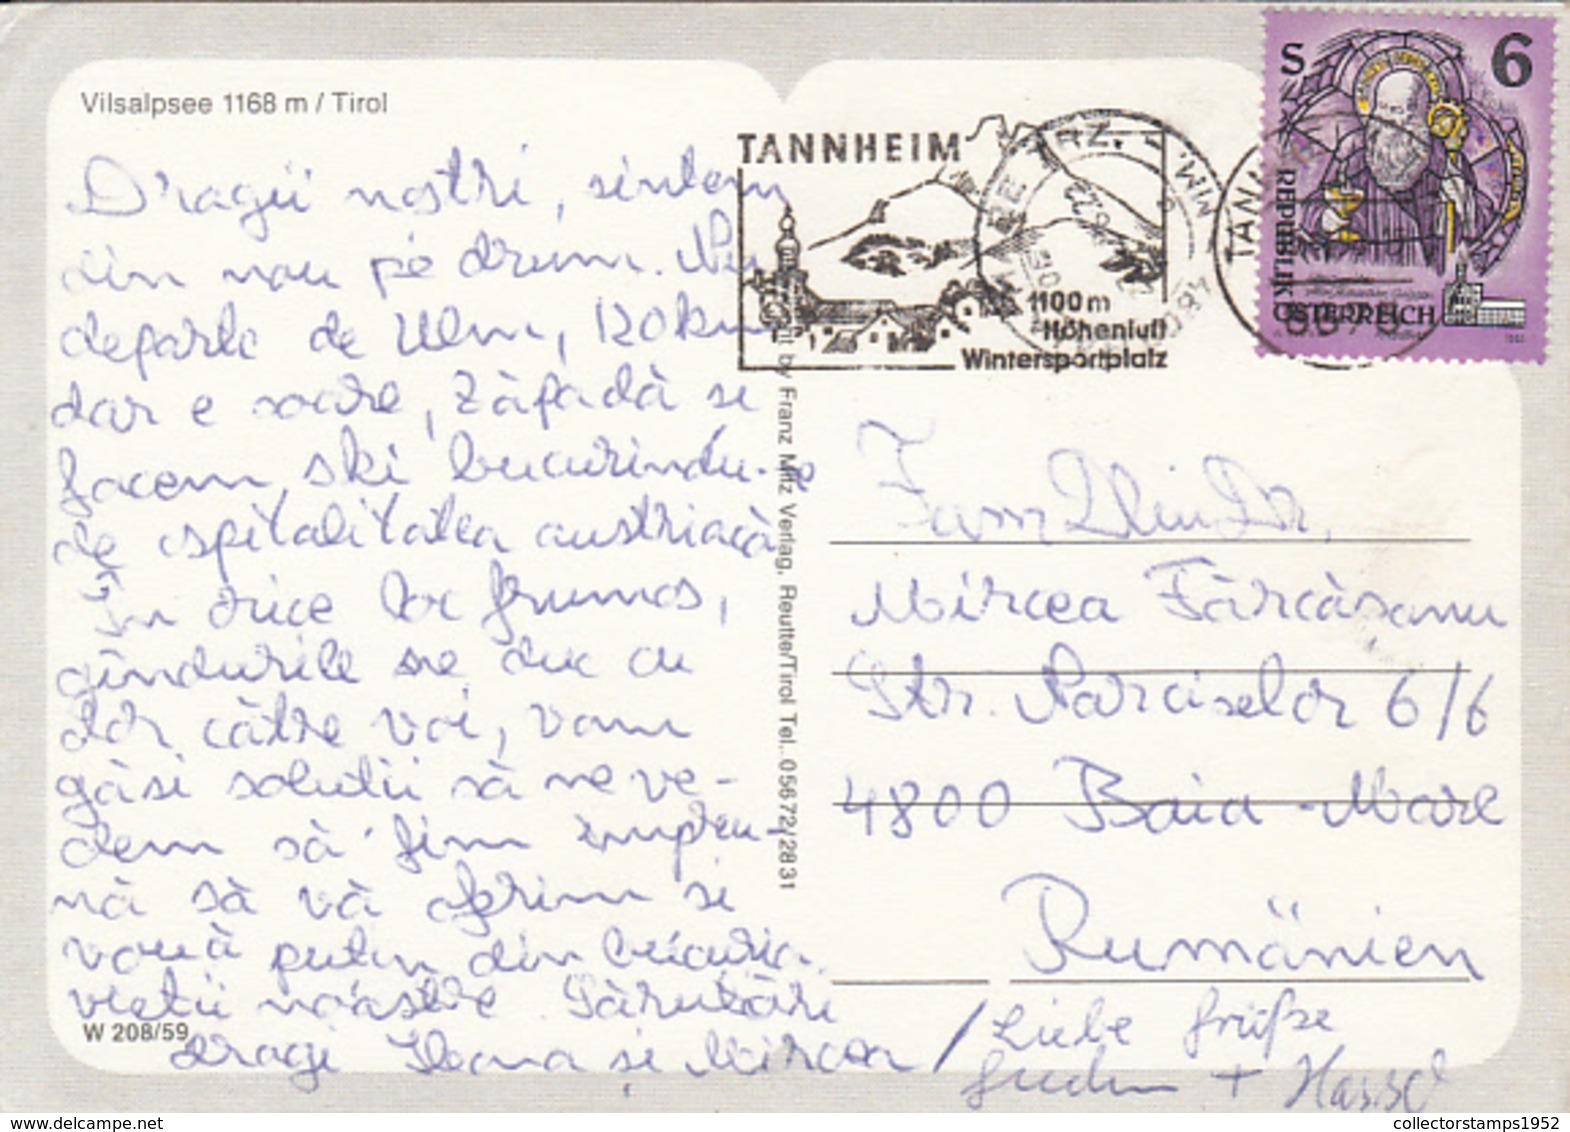 Vilsalpsee 1168 m / Tirol
Dragii noștri, sîntem
din nou pe drum. Nu
departe de Ulm, 120 km
dar e soare, zăpadă și
facem ski bucurîndu-ne
de ospitalitatea austriacă
În orice loc frumos,
gîndurile ne duc cu
dor către voi, vom
găsi soluții să ne ve-
dem să fim împreu-
nă să vă oferim și
vouă puțin din bucuria
vieții noastre Sărutări
dragi Ileana și Mircea /
W 208/59
by Franz Milz Verlag, Reutte/Tirol Tel. 05672/2831
TANNHEIM
1100 m
Höhenluft
Wintersportplatz
S 6
REPUBLIK
ÖSTERREICH
Fam
Mircea Fărcășanu
Str. Narciselor 6/6
4800 Baia-Mare
Rumänien
Liebe Grüße
+ Hasso
collectorstamps1952